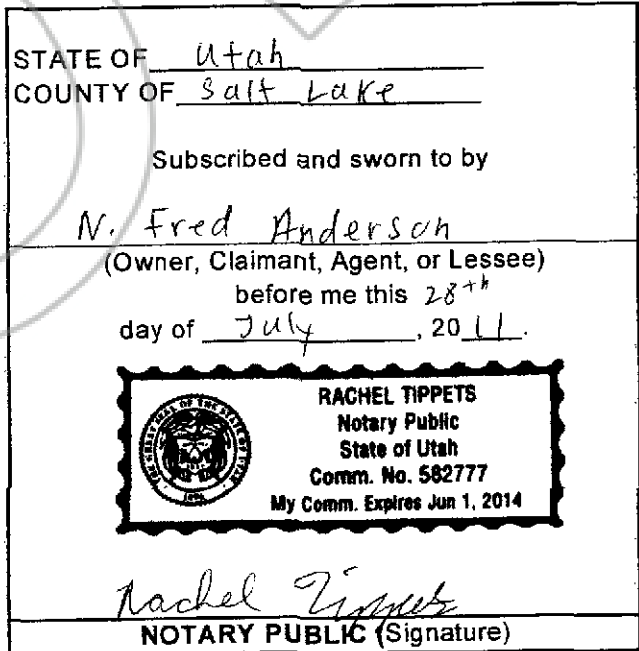 STATE OF Utah
COUNTY OF Salt Lake
Subscribed and sworn to by
N. Fred Anderson
(Owner, Claimant, Agent, or Lessee)
before me this 28th
day of July, 2011.
THE GREAT SEAL OF THE STATE OF UTAH
1896
RACHEL TIPPETS
Notary Public
State of Utah
Comm. No. 582777
My Comm. Expires Jun 1, 2014
Rachel Tippets
NOTARY PUBLIC (Signature)